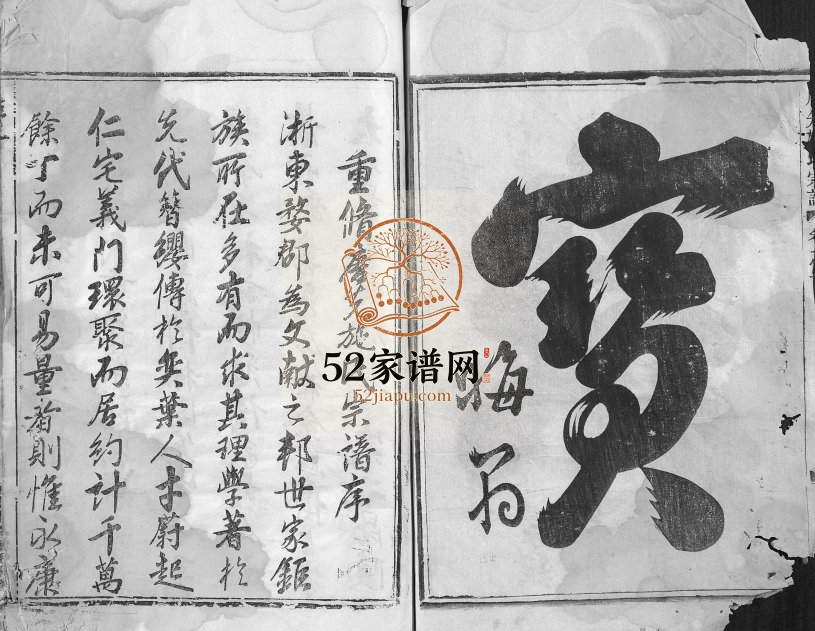 寳
晦
翁
重脩施氏宗譜序
浙東婺郡為文献之邦世家鉅
族所在多有而求其理學著於
先代簪纓傳於奕葉人才蔚起
仁宅義門環聚而居約計千萬
餘丁而未可易量者則惟永康
52家谱网
52jiapu.com